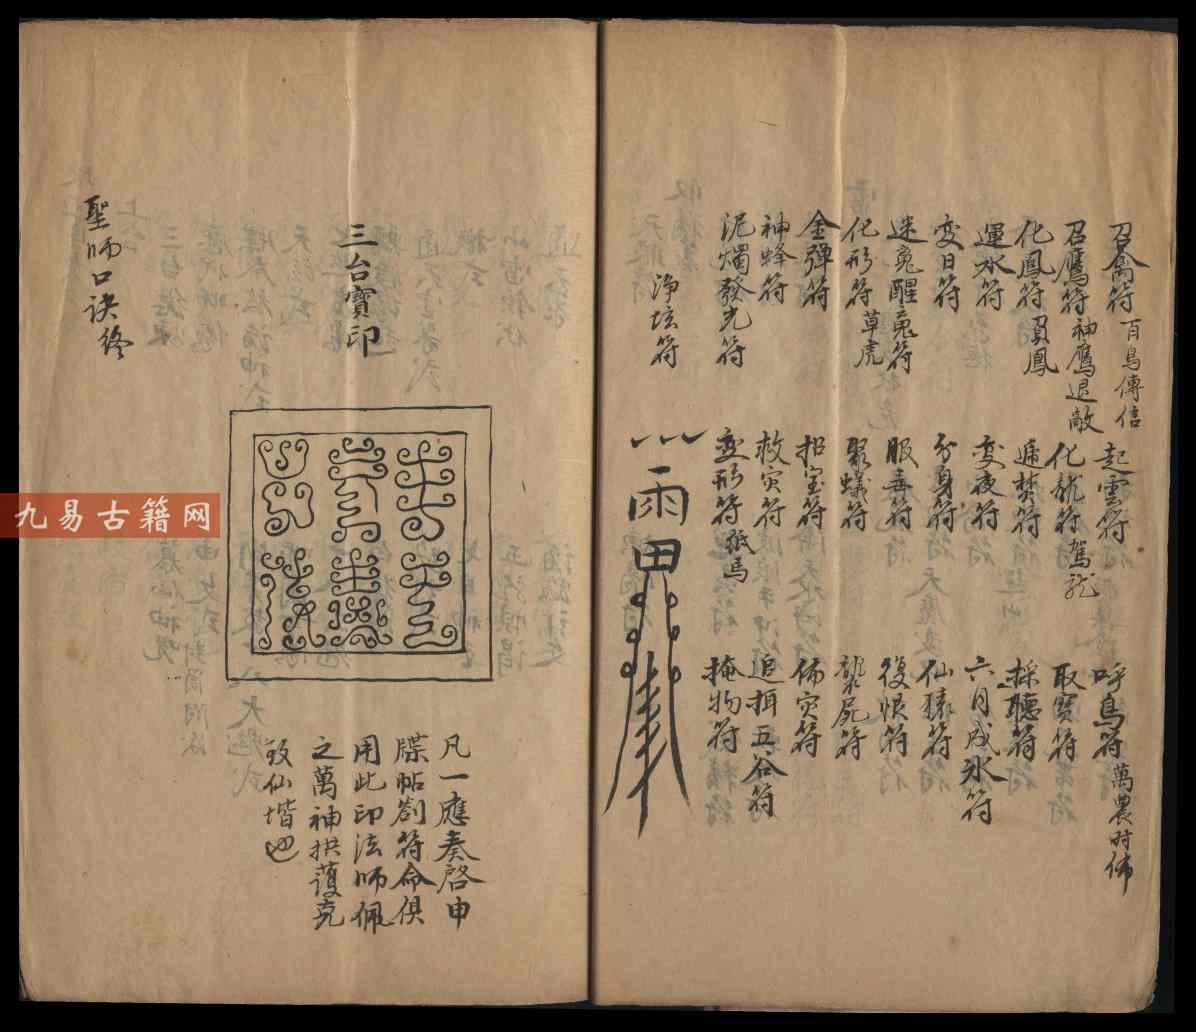 召禽符 百鳥傳信
起雲符
呼鳥符 萬農时佈
召鷹符 神鷹退敵
化龍符 駕龙
取寶符
化鳳符 召鳳
遁焚符
採聽符
運水符
变夜符
六月成氷符
変日符
分身符
仙猿符
迷䰟醒䰟符
服毒符
復恨符
化形符 草虎
聚蟻符
襲屍符
金彈符
招宝符
佈灾符
神蜂符
救灾符
追捐五谷符
泥燭發光符
変形符 紙馬
掩物符
淨坛符
三台寶印
凡一應奏啓申
牒帖劄符命俱
用此印法師佩
之萬神拱護克
致仙堦也
聖师口诀终
九易古籍网